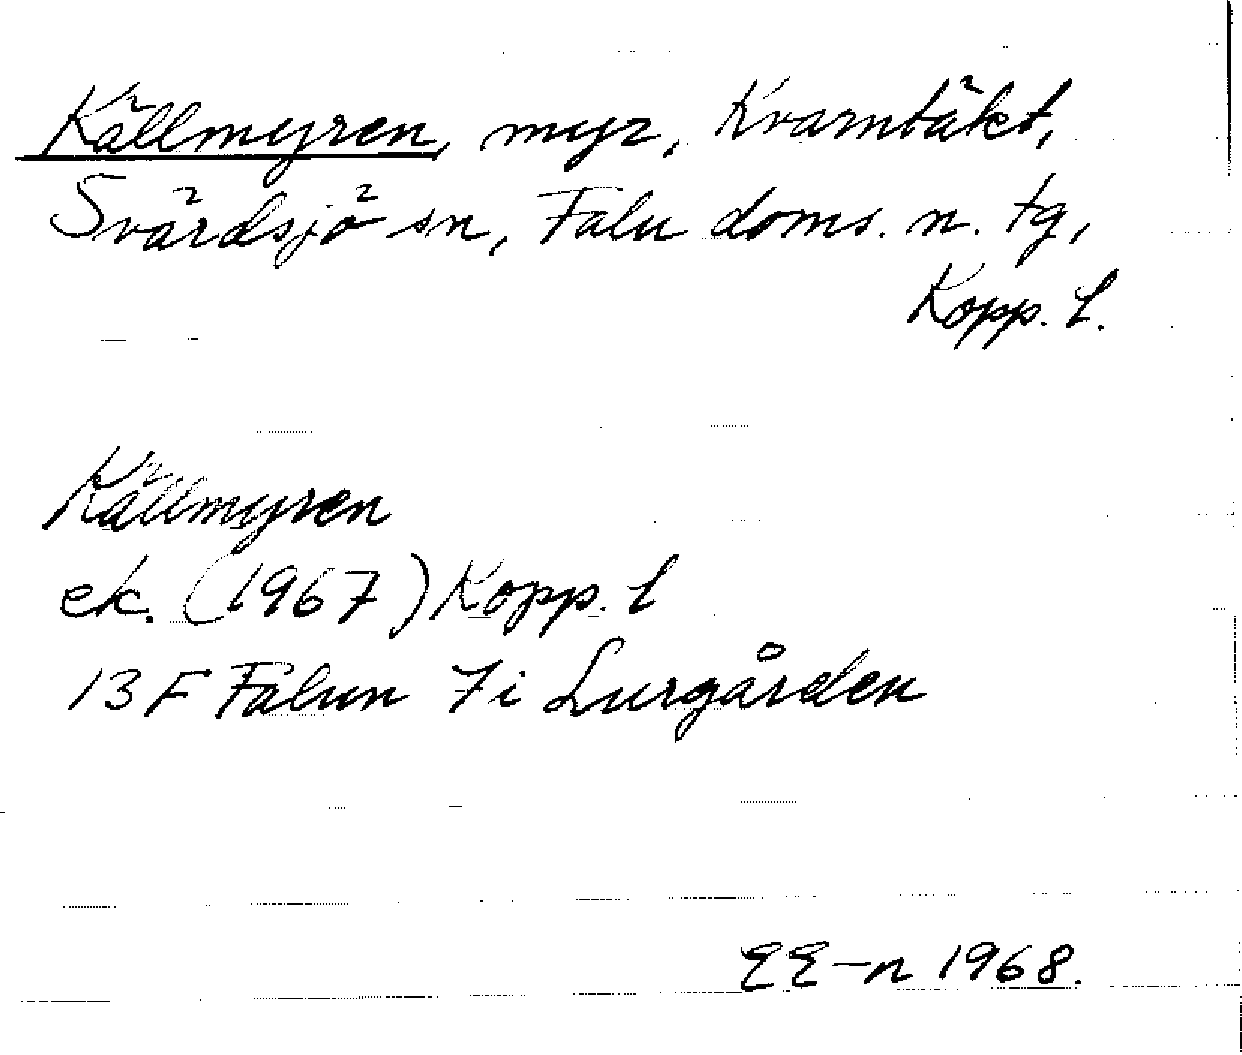 Källmyren, myr, Kvarntäkt,
Svärdsjö sn, Falu doms. n. tg,
Kopp. l.
Källmyren
ek. (1967) Kopp. l
13 F Falun 7i Lurgården
EE-n 1968.